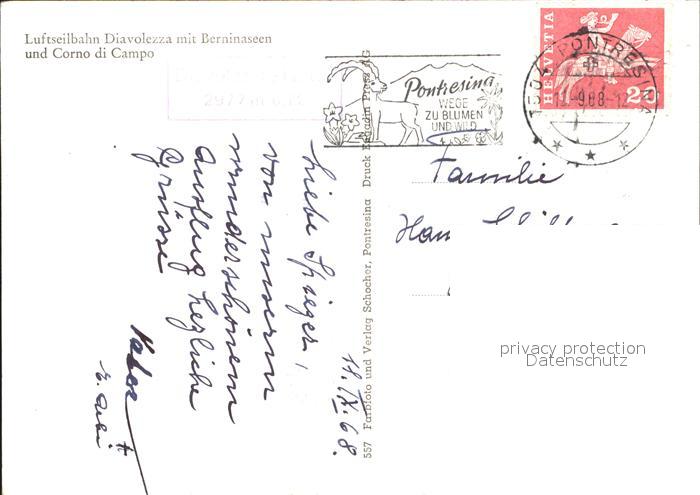 Luftseilbahn Diavolezza mit Berninaseen
und Corno di Campo
2977 m ü.M.
Pontresina
WEGE
ZU BLUMEN
UND WILD
7504 PONTRESINA
HELVETIA
20
Familie
11. IX. 68.
Liebe Spieger,
von unserm
wunderschönen
Ausflug herzliche
Grüsse
557 Farbfoto und Verlag Schocher, Pontresina Druck Engadin Press AG
privacy protection
Datenschutz